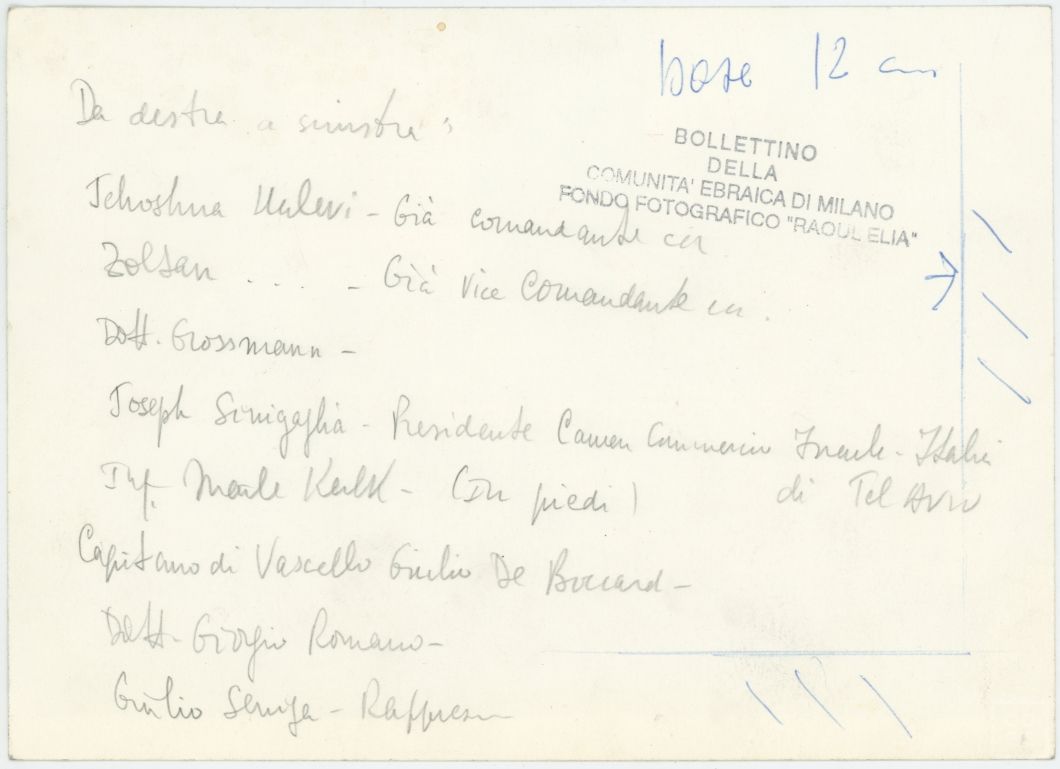 base 12 cm
Da destra a sinistra:
BOLLETTINO
DELLA
COMUNITA' EBRAICA DI MILANO
FONDO FOTOGRAFICO "RAOUL ELIA"
Jehoshua Halevi - Già comandante
Zoltan . . . . - Già Vice Comandante
Dott. Grossmann -
Joseph Sinigaglia - Presidente Camera Commercio Israele - Italia
di Tel Aviv
Ing. (In piedi)
Capitano di Vascello Giulio De
Dott. Giorgio Romano -
Giulio Seniga -